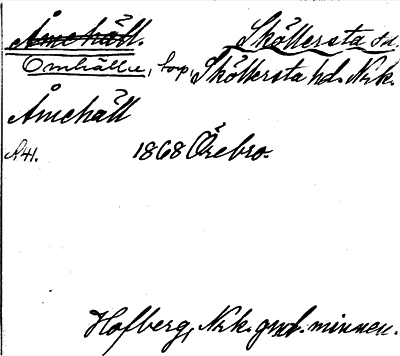 Åmehäll. Sköllersta sn.
Omhälle, torp, Sköllersta hd. Nrk.
Åmehäll
A41. 1868 Örebro.
Hofberg, Nrk. gml. minnen.